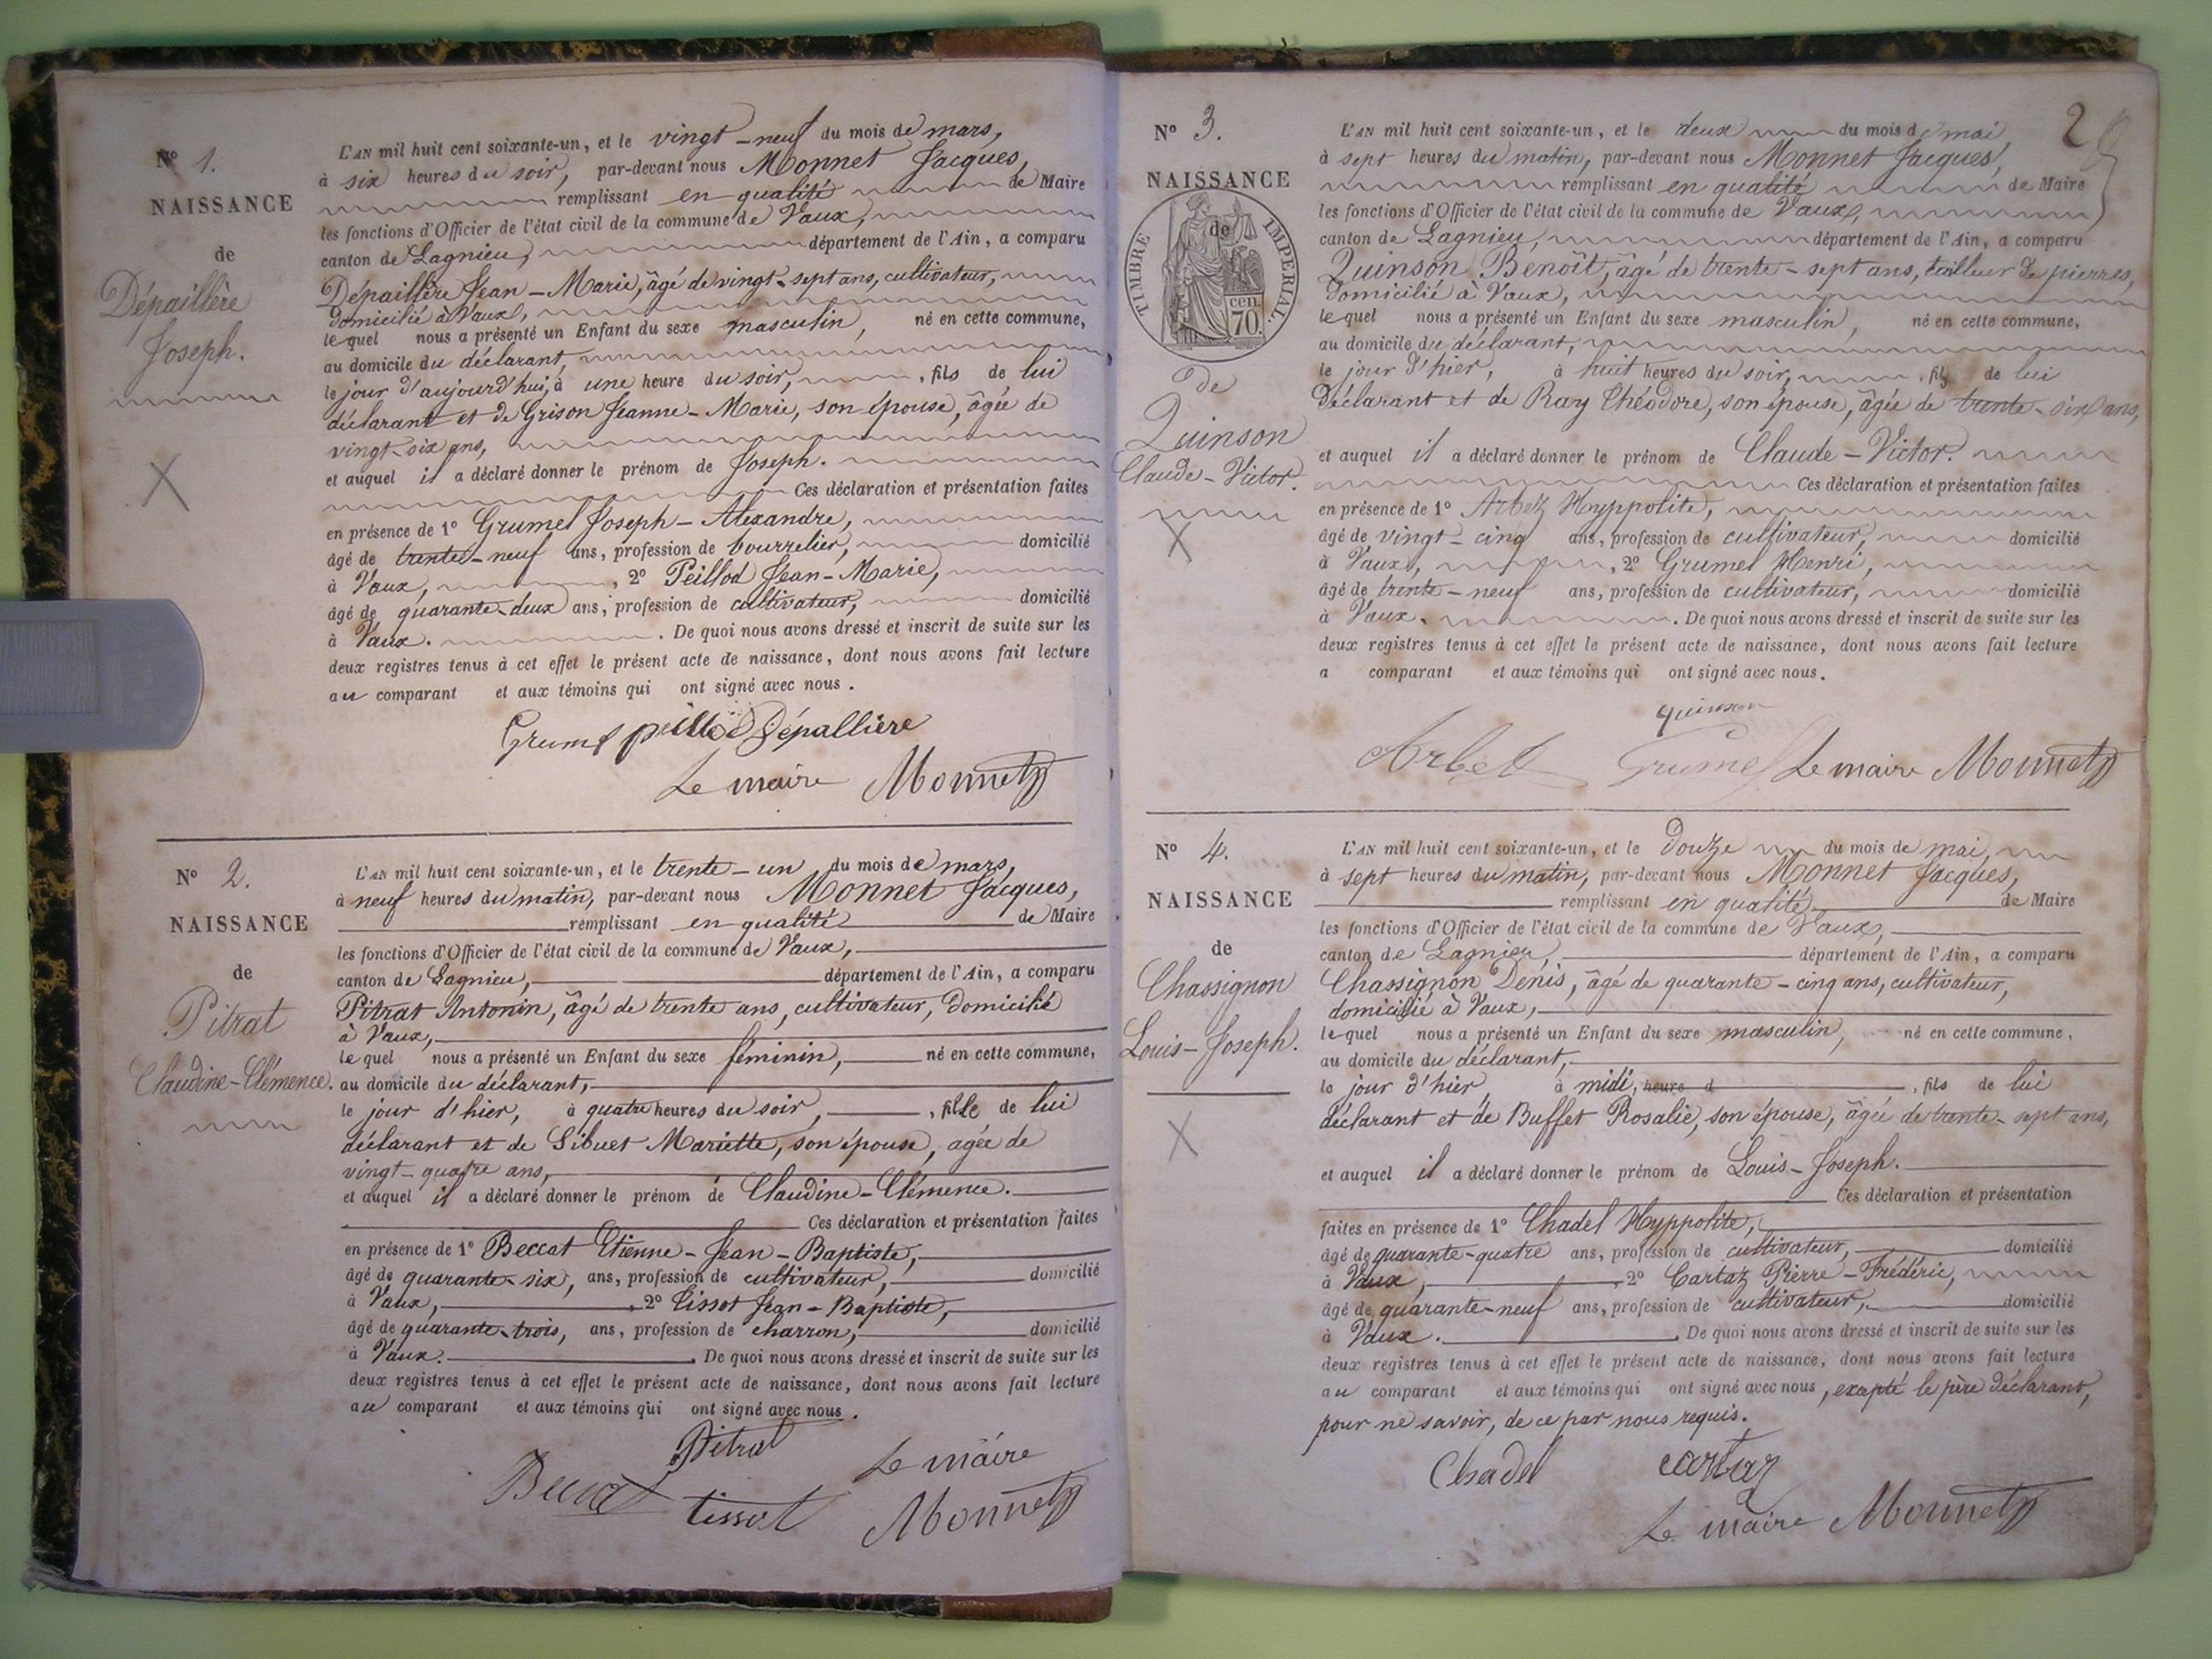 N° 1.
NAISSANCE
de
Dépaillère
Joseph.
L'AN mil huit cent soixante-un, et le vingt-neuf du mois de mars,
à six heures du soir, par-devant nous Monnet Jacques,
remplissant en qualité de Maire
les fonctions d'Officier de l'état civil de la commune de Vaux,
canton de Lagnieu, département de l'Ain, a comparu
Dépaillère Jean-Marie, âgé de vingt-sept ans, cultivateur,
domicilié à Vaux,
lequel nous a présenté un Enfant du sexe masculin, né en cette commune,
au domicile du déclarant,
le jour d'aujourd'hui, à une heure du soir, fils de lui
déclarant et de Grison Jeanne-Marie, son épouse, âgée de
vingt-six ans,
et auquel il a déclaré donner le prénom de Joseph.
Ces déclaration et présentation faites
en présence de 1° Grumel Joseph-Alexandre,
âgé de trente-neuf ans, profession de bourrelier, domicilié
à Vaux, 2° Peillod Jean-Marie,
âgé de quarante-deux ans, profession de cultivateur, domicilié
à Vaux. De quoi nous avons dressé et inscrit de suite sur les
deux registres tenus à cet effet le présent acte de naissance, dont nous avons fait lecture
au comparant et aux témoins qui ont signé avec nous.
Grumel peillod Dépallière
Le maire Monnet
N° 2.
NAISSANCE
de
Pitrat
Claudine-Clémence.
L'AN mil huit cent soixante-un, et le trente-un du mois de mars,
à neuf heures du matin, par-devant nous Monnet Jacques,
remplissant en qualité de Maire
les fonctions d'Officier de l'état civil de la commune de Vaux,
canton de Lagnieu, département de l'Ain, a comparu
Pitrat Antonin, âgé de trente ans, cultivateur, domicilié
à Vaux,
lequel nous a présenté un Enfant du sexe féminin, né en cette commune,
au domicile du déclarant,
le jour d'hier, à quatre heures du soir, fille de lui
déclarant et de Sibuet Mariette, son épouse, agée de
vingt-quatre ans,
et auquel il a déclaré donner le prénom de Claudine-Clémence.
Ces déclaration et présentation faites
en présence de 1° Beccat Etienne-Jean-Baptiste,
âgé de quarante-six, ans, profession de cultivateur, domicilié
à Vaux, 2° Tissot Jean-Baptiste,
âgé de quarante-trois, ans, profession de charron, domicilié
à Vaux. De quoi nous avons dressé et inscrit de suite sur les
deux registres tenus à cet effet le présent acte de naissance, dont nous avons fait lecture
au comparant et aux témoins qui ont signé avec nous.
Pitrat
Beccat tissot Le maire
Monnet
2
N° 3.
NAISSANCE
de
TIMBRE IMPERIAL
70 cen.
de
Quinson
Claude-Victor.
L'AN mil huit cent soixante-un, et le deux du mois de mai
à sept heures du matin, par-devant nous Monnet Jacques,
remplissant en qualité de Maire
les fonctions d'Officier de l'état civil de la commune de Vaux,
canton de Lagnieu, département de l'Ain, a comparu
Quinson Benoît, âgé de trente-sept ans, tailleur de pierres,
domicilié à Vaux,
lequel nous a présenté un Enfant du sexe masculin, né en cette commune,
au domicile du déclarant,
le jour d'hier, à huit heures du soir, fils de lui
déclarant et de Ray Théodore, son épouse, âgée de trente-six ans,
et auquel il a déclaré donner le prénom de Claude-Victor.
Ces déclaration et présentation faites
en présence de 1° Arbez Hyppolite,
âgé de vingt-cinq ans, profession de cultivateur, domicilié
à Vaux, 2° Grumel Henri,
âgé de trente-neuf ans, profession de cultivateur, domicilié
à Vaux. De quoi nous avons dressé et inscrit de suite sur les
deux registres tenus à cet effet le présent acte de naissance, dont nous avons fait lecture
a comparant et aux témoins qui ont signé avec nous.
quinson
Grumel Le maire Monnet
N° 4.
NAISSANCE
de
Chassignon
Louis-Joseph.
L'AN mil huit cent soixante-un, et le douze du mois de mai
à sept heures du matin, par-devant nous Monnet Jacques,
remplissant en qualité de Maire
les fonctions d'Officier de l'état civil de la commune de Vaux,
canton de Lagnieu, département de l'Ain, a comparu
Chassignon Denis, âgé de quarante-cinq ans, cultivateur,
domicilié à Vaux,
lequel nous a présenté un Enfant du sexe masculin, né en cette commune,
au domicile du déclarant,
le jour d'hier à midi, heure d , fils de lui
déclarant et de Buffet Rosalie, son épouse, âgée de trente-sept ans,
et auquel il a déclaré donner le prénom de Louis-Joseph.
Ces déclaration et présentation
faites en présence de 1° Chadel Hyppolite,
âgé de quarante-quatre ans, profession de cultivateur, domicilié
à Vaux, 2° Cartaz Pierre-Frédéric,
âgé de quarante-neuf ans, profession de cultivateur, domicilié
à Vaux. De quoi nous avons dressé et inscrit de suite sur les
deux registres tenus à cet effet le présent acte de naissance, dont nous avons fait lecture
au comparant et aux témoins qui ont signé avec nous, excepté le père déclarant,
pour ne savoir, de ce par nous requis.
Chadel cartaz
Le maire Monnet